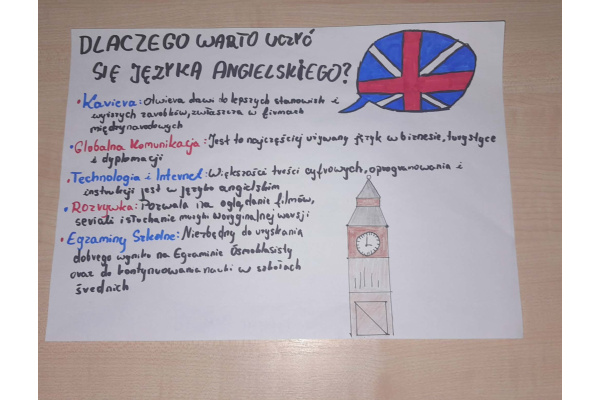 DLACZEGO WARTO UCZYĆ
SIĘ JĘZYKA ANGIELSKIEGO?
• Kariera: Otwiera drzwi do lepszych stanowisk i
wyższych zarobków, zwłaszcza w firmach
międzynarodowych
• Globalna Komunikacja: Jest to najczęściej używany język w biznesie, turystyce
i dyplomacji
• Technologia i Internet: Większości treści cyfrowych, oprogramowania i
instrukcji jest w języku angielskim
• Rozrywka: Pozwala na oglądanie filmów,
seriali i słuchanie muzyki w oryginalnej wersji
• Egzaminy Szkolne: Niezbędny do uzyskania
dobrego wyniku na Egzaminie Ósmoklasisty
oraz do kontynuowania nauki w szkołach
średnich